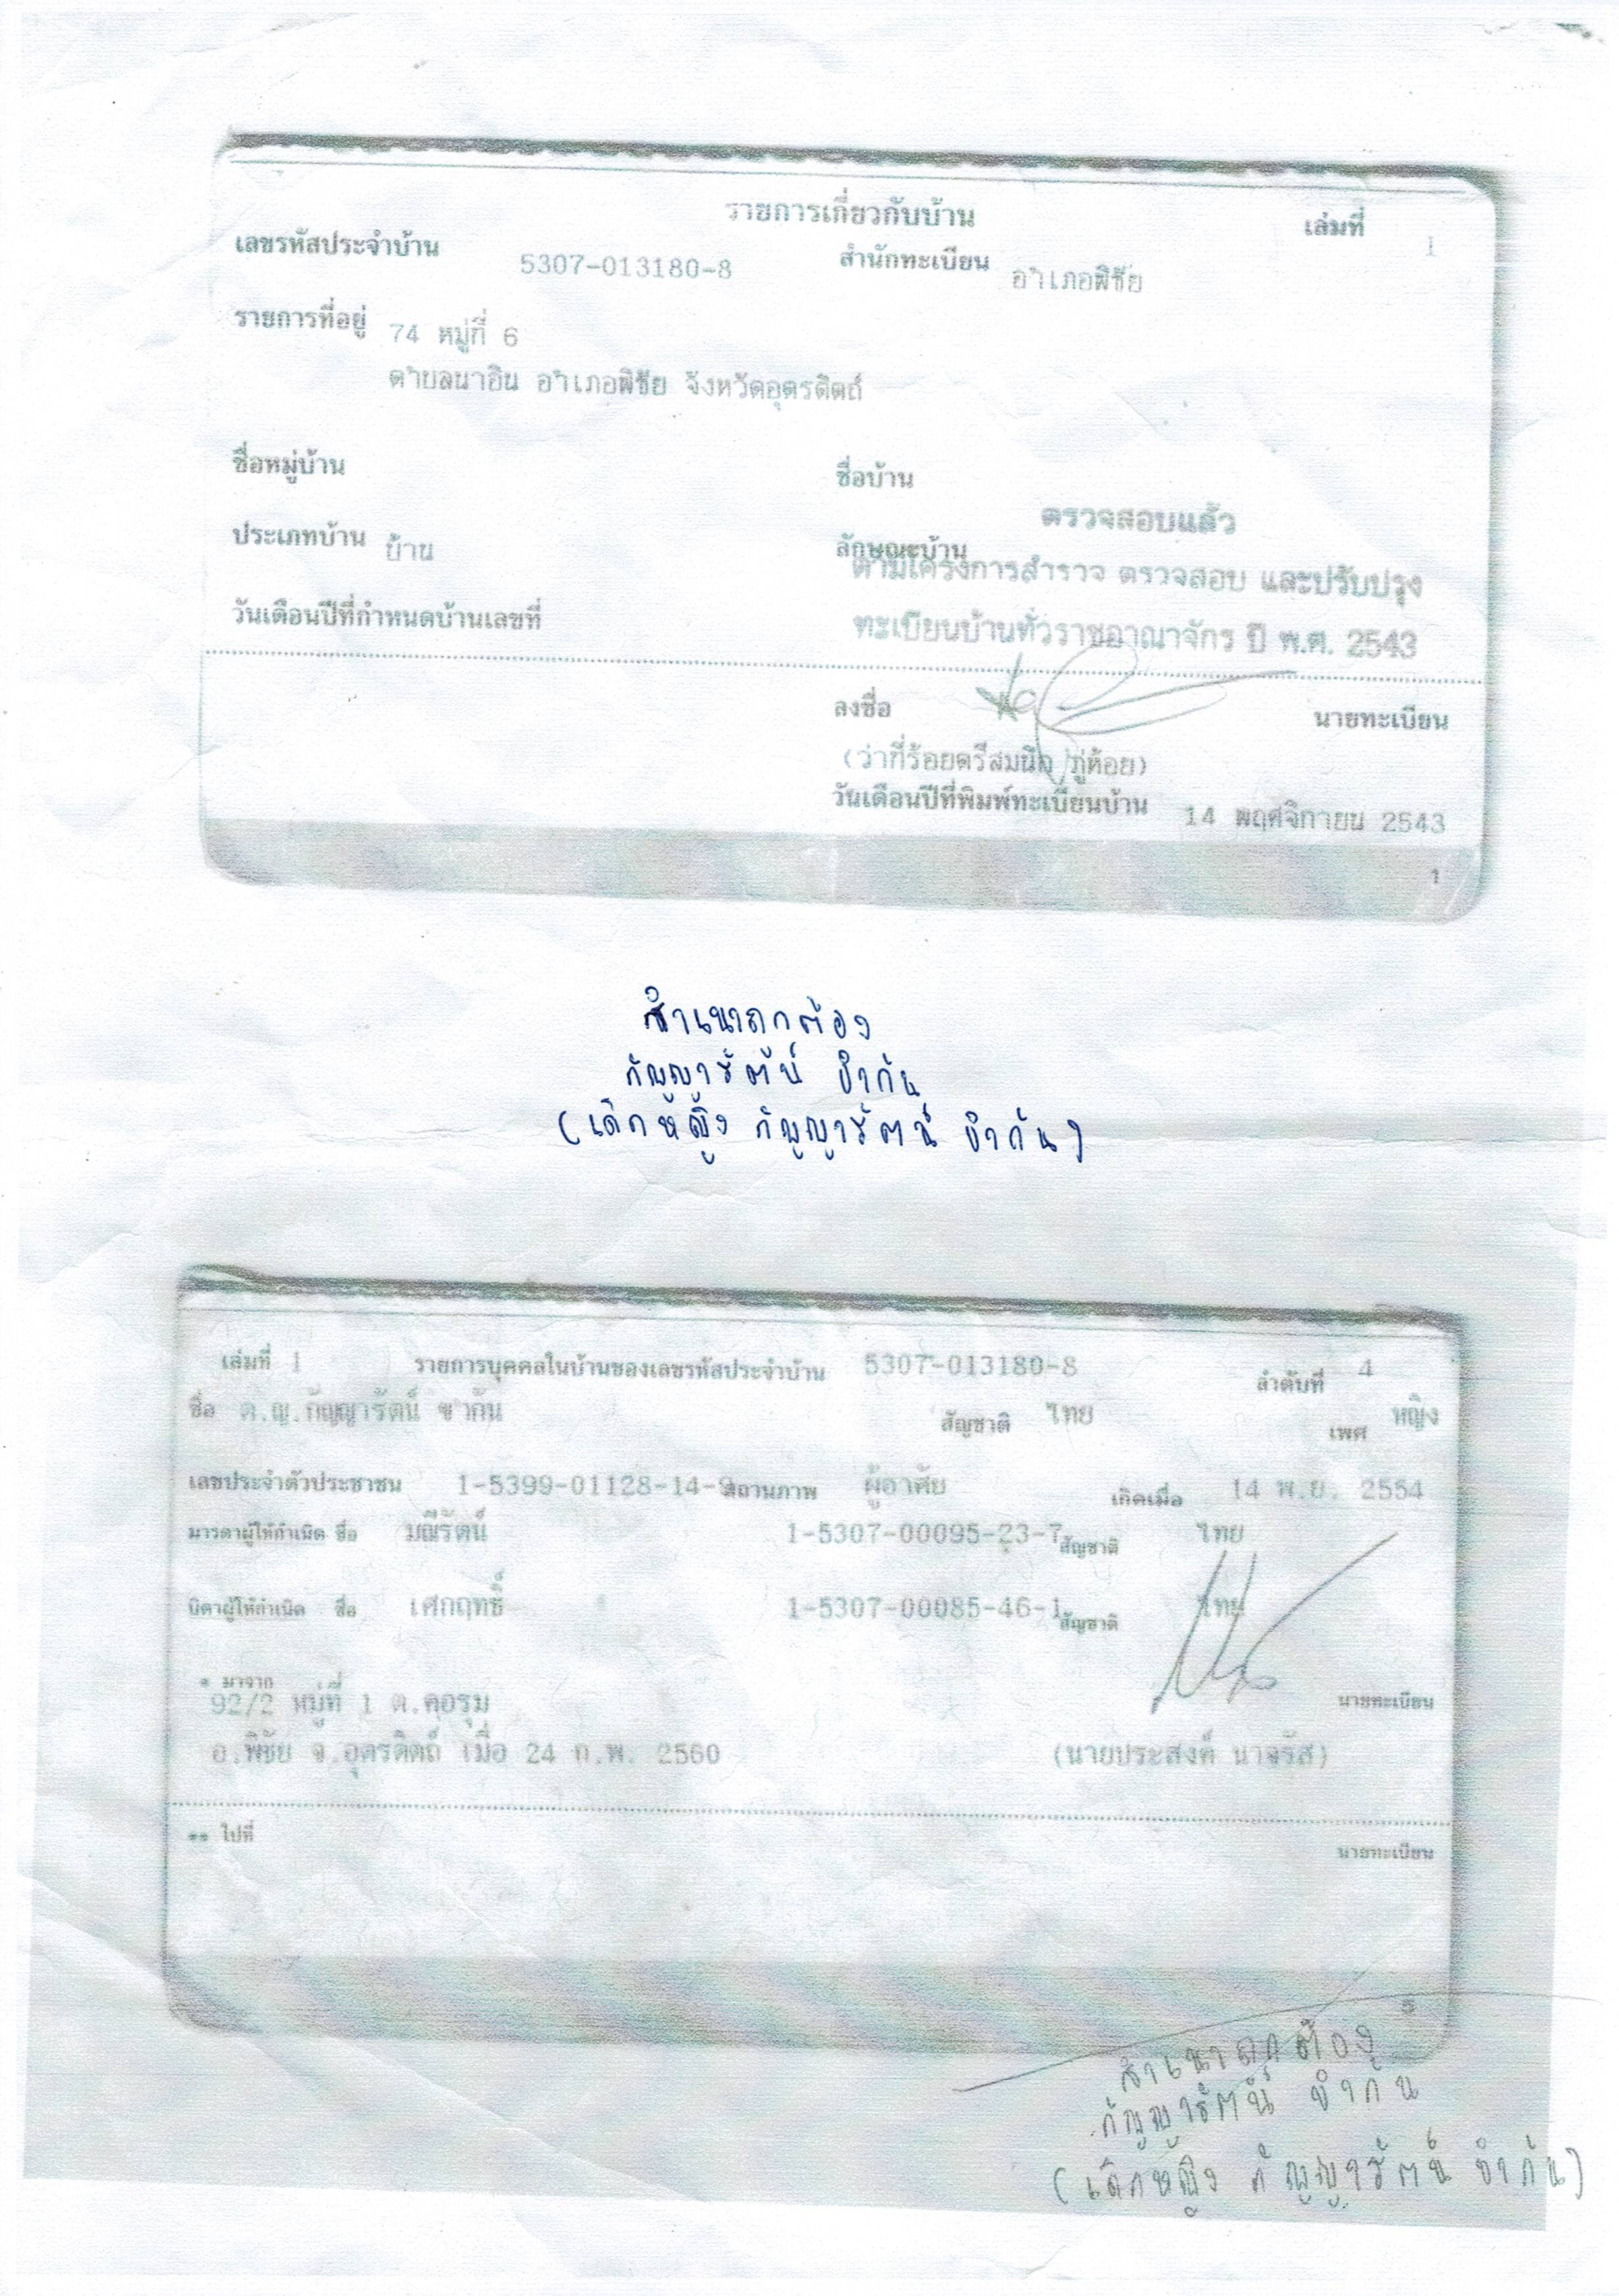 รายการเกี่ยวกับบ้าน เล่มที่ 1
เลขรหัสประจำบ้าน 5307-013180-8 สำนักทะเบียน อำเภอพิชัย
รายการที่อยู่ 74 หมู่ที่ 6
ตำบลนาอิน อำเภอพิชัย จังหวัดอุตรดิตถ์
ชื่อหมู่บ้าน ชื่อบ้าน
ตรวจสอบแล้ว
ประเภทบ้าน บ้าน ลักษณะบ้าน
ตามโครงการสำรวจ ตรวจสอบ และปรับปรุง
วันเดือนปีที่กำหนดบ้านเลขที่ ทะเบียนบ้านทั่วราชอาณาจักร ปี พ.ศ. 2543
ลงชื่อ นายทะเบียน
(ว่าที่ร้อยตรีสมนึก ภู่ห้อย)
วันเดือนปีที่พิมพ์ทะเบียนบ้าน 14 พฤศจิกายน 2543
1
สำเนาถูกต้อง
กัญญารัตน์ ขำกัน
(เด็กหญิง กัญญารัตน์ ขำกัน)
เล่มที่ 1 รายการบุคคลในบ้านของเลขรหัสประจำบ้าน 5307-013180-8 ลำดับที่ 4
ชื่อ ด.ญ.กัญญารัตน์ ขำกัน สัญชาติ ไทย เพศ หญิง
เลขประจำตัวประชาชน 1-5399-01128-14-9 สถานภาพ ผู้อาศัย เกิดเมื่อ 14 พ.ย. 2554
มารดาผู้ให้กำเนิด ชื่อ มณีรัตน์ 1-5307-00095-23-7 สัญชาติ ไทย
บิดาผู้ให้กำเนิด ชื่อ เศกฤทธิ์ 1-5307-00085-46-1 สัญชาติ ไทย
* มาจาก
92/2 หมู่ที่ 1 ต.คอรุม นายทะเบียน
อ.พิชัย จ.อุตรดิตถ์ เมื่อ 24 ก.พ. 2560 (นายประสงค์ นาจรัส)
** ไปที่ นายทะเบียน
สำเนาถูกต้อง
กัญญารัตน์ ขำกัน
(เด็กหญิง กัญญารัตน์ ขำกัน)